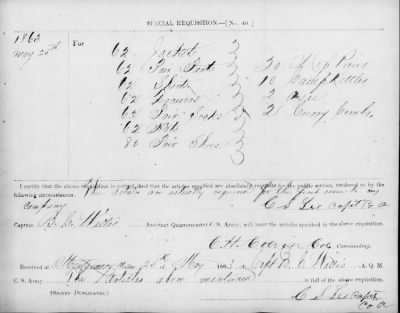 SPECIAL REQUISITION.—[No. 40.]
1863
May 25th For 62 Jackets
62 Pair Pants 20 Mess Pans
62 Shirts 10 Camp Kettles
62 Drawers 2 Axes
62 Pair Socks 2 Curry Combs
62 Hats
80 Pair Shoes
I certify that the above requisition is correct, and that the articles specified are absolutely requisite for the public service, rendered so by the
following circumstances: The above are actually required for the
company C S Lee Capt Co A
Captain Assistant Quartermaster C. S. Army, will issue the articles specified in the above requisition.
C. H. Col Commanding.
Received at Montgomery 25th of May 1863, of Capt A. Q. M.
C. S. Army, the Articles above mentioned in full of the above requisition.
(SIGNED DUPLICATES.) C S Lee Capt
Co A